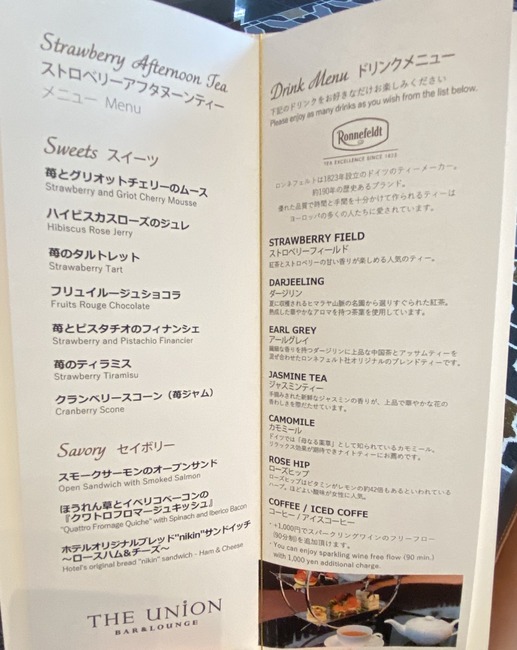 Strawberry Afternoon Tea
ストロベリーアフタヌーンティー
メニュー Menu
Sweets スイーツ
苺とグリオットチェリーのムース
Strawberry and Griot Cherry Mousse
ハイビスカスローズのジュレ
Hibiscus Rose Jerry
苺のタルトレット
Strawaberry Tart
フリュイルージュショコラ
Fruits Rouge Chocolate
苺とピスタチオのフィナンシェ
Strawberry and Pistachio Financier
苺のティラミス
Strawberry Tiramisu
クランベリースコーン（苺ジャム）
Cranberry Scone
Savory セイボリー
スモークサーモンのオープンサンド
Open Sandwich with Smoked Salmon
ほうれん草とイベリコベーコンの
『クワトロフロマージュキッシュ』
"Quattro Fromage Quiche" with Spinach and Iberico Bacon
ホテルオリジナルブレッド"nikin"サンドイッチ
～ロースハム＆チーズ～
Hotel's original bread "nikin" sandwich - Ham & Cheese
THE UNION
BAR&LOUNGE
Drink Menu ドリンクメニュー
下記のドリンクをお好きなだけお楽しみください
Please enjoy as many drinks as you wish from the list below.
Ronnefeldt
TEA EXCELLENCE SINCE 1823
ロンネフェルトは1823年設立のドイツのティーメーカー。
約190年の歴史あるブランド。
優れた品質で時間と手間を十分かけて作られるティーは
ヨーロッパの多くの人たちに愛されています。
STRAWBERRY FIELD
ストロベリーフィールド
紅茶とストロベリーの甘い香りが楽しめる人気のティー。
DARJEELING
ダージリン
夏に収穫されるヒマラヤ山脈の名園から選りすぐられた紅茶。
熟成した華やかなアロマを持つ茶葉を使用しています。
EARL GREY
アールグレイ
繊細な香りを持つダージリンに上品な中国茶とアッサムティーを
混ぜ合わせたロンネフェルト社オリジナルのブレンドティーです。
JASMINE TEA
ジャスミンティー
手摘みされた新鮮なジャスミンの香りが、上品で華やかな花の
香わしさを際だたせています。
CAMOMILE
カモミール
ドイツでは「母なる薬草」として知られているカモミール。
リラックス効果が期待できナイトティーにお薦めです。
ROSE HIP
ローズヒップ
ローズヒップはビタミンがレモンの約42倍もあるといわれている
ハーブ。ほどよい酸味が女性に人気。
COFFEE / ICED COFFE
コーヒー / アイスコーヒー
・+1,000円でスパークリングワインのフリーフロー
(90分制)を追加頂けます。
・You can enjoy sparkling wine free flow (90 min.)
with 1,000 yen additional charge.